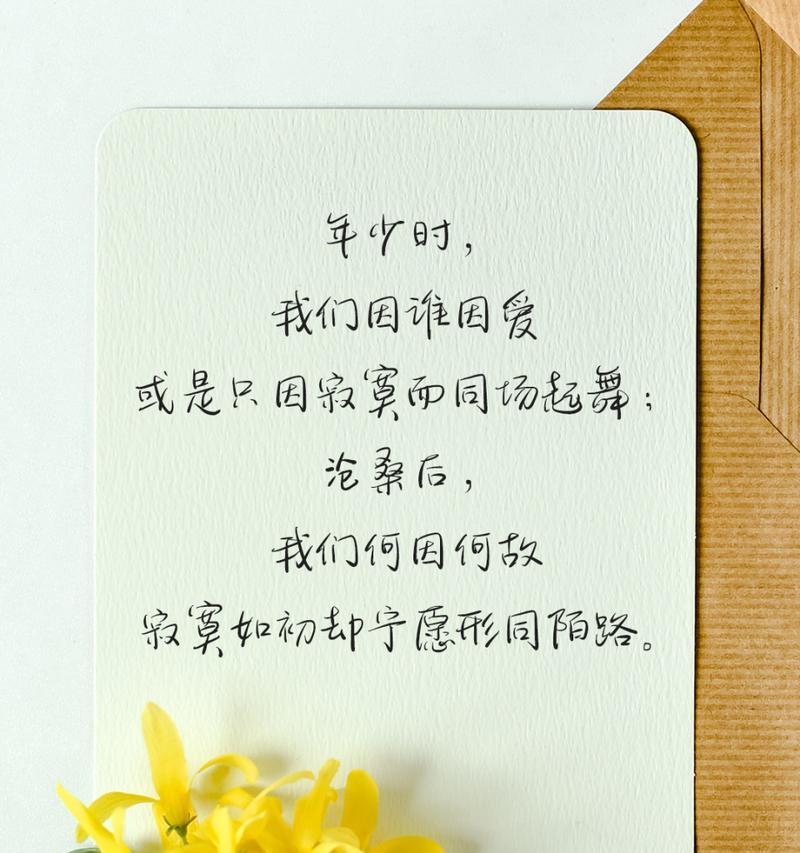 年少时，
我们因谁因爱
或是只因寂寞而同场起舞；
沧桑后，
我们何因何故
寂寞如初却宁愿形同陌路。